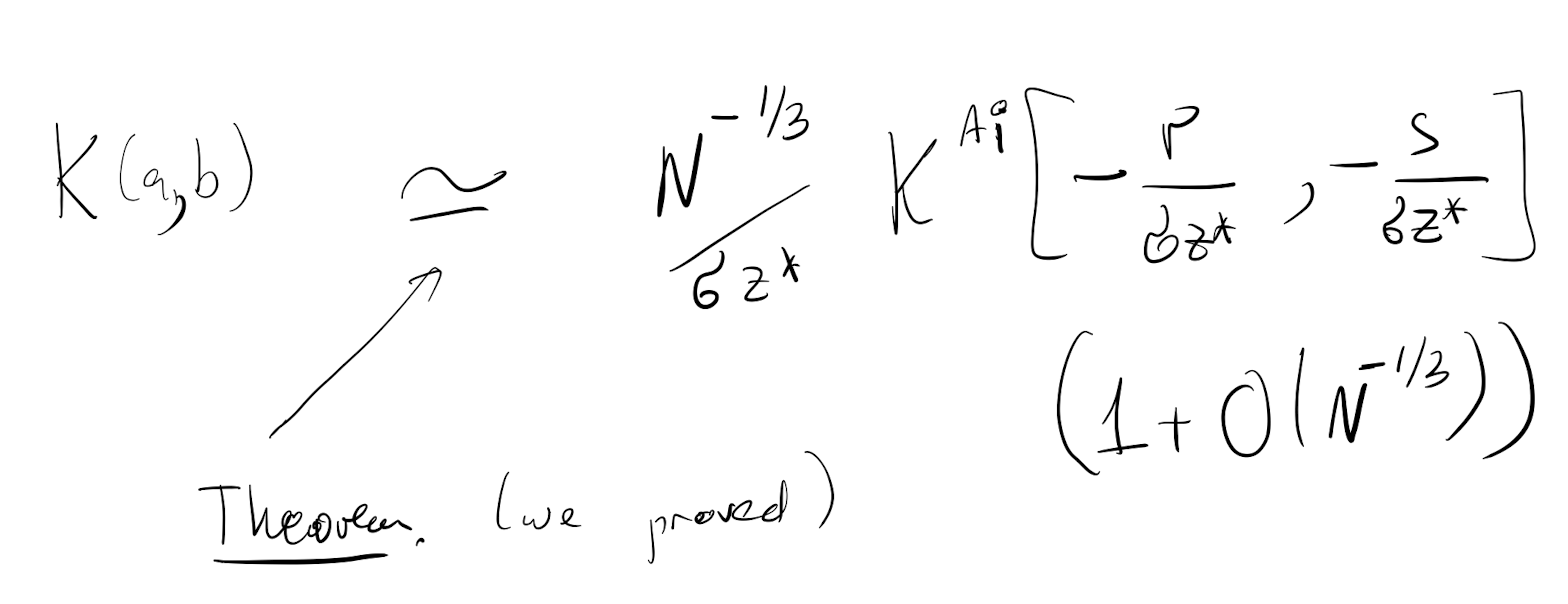 K(a,b) ≃ N^{-1/3} / σz* K^{Ai} [ -p/σz* , -s/σz* ]
(1 + O(N^{-1/3}))
Theorem. (we proved)